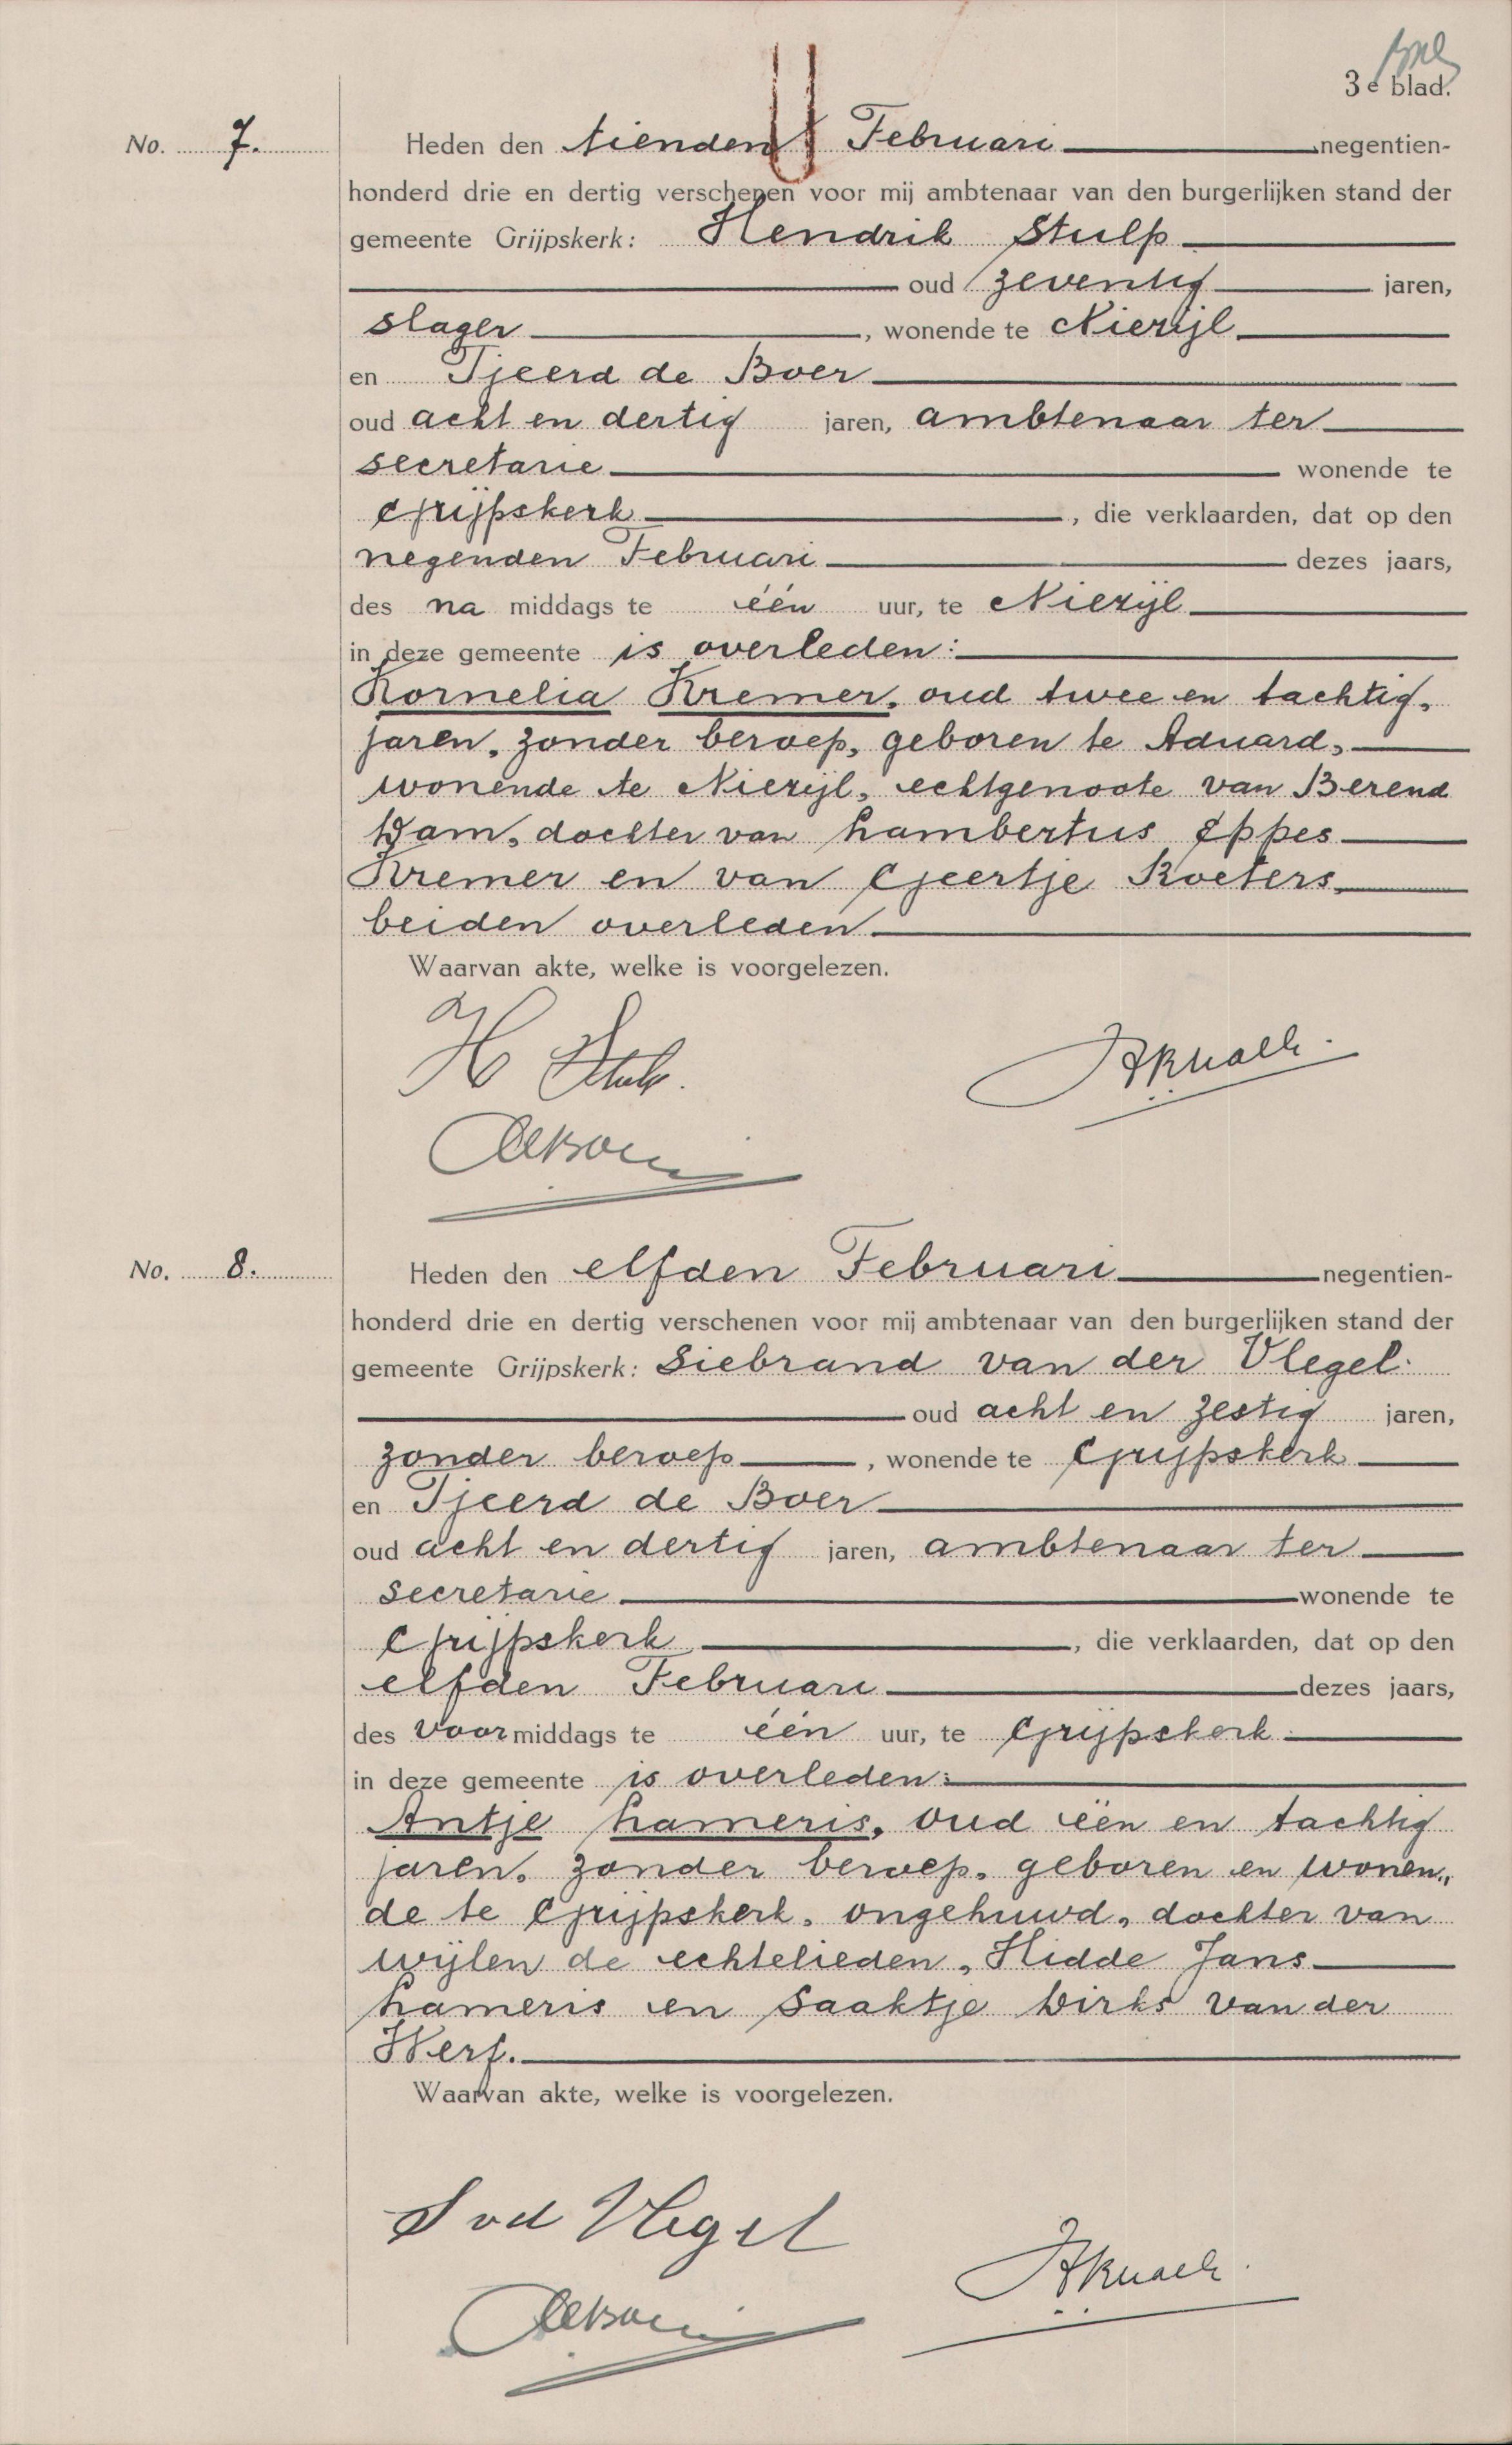 3e blad.
No. 7. Heden den tienden Februari negentien-
honderd drie en dertig verschenen voor mij ambtenaar van den burgerlijken stand der
gemeente Grijpskerk: Hendrik Stulp
oud zeventig jaren,
slager, wonende te Niezijl
en Tjeerd de Boer
oud acht en dertig jaren, ambtenaar ter
secretarie wonende te
Grijpskerk, die verklaarden, dat op den
negenden Februari dezes jaars,
des na middags te één uur, te Niezijl
in deze gemeente is overleden:
Kornelia Kremer, oud twee en tachtig,
jaren, zonder beroep, geboren te Aduard,
wonende te Niezijl, echtgenoote van Berend
Dam, dochter van Lambertus Eppes
Kremer en van Geertje Roeters
beiden overleden
Waarvan akte, welke is voorgelezen.
H Stulp.
No. 8. Heden den elfden Februari negentien-
honderd drie en dertig verschenen voor mij ambtenaar van den burgerlijken stand der
gemeente Grijpskerk: Siebrand van der Vlegel
oud acht en zestig jaren,
zonder beroep, wonende te Grijpskerk
en Tjeerd de Boer
oud acht en dertig jaren, ambtenaar ter
secretarie wonende te
Grijpskerk, die verklaarden, dat op den
elfden Februari dezes jaars,
des voor middags te één uur, te Grijpskerk
in deze gemeente is overleden:
Antje Hameris, oud één en tachtig
jaren, zonder beroep, geboren en wonen„
de te Grijpskerk, ongehuwd, dochter van
wijlen de echtelieden, Hidde Jans
Hameris en Saaktje Dirks van der
Werf.
Waarvan akte, welke is voorgelezen.
S vd Vlegel